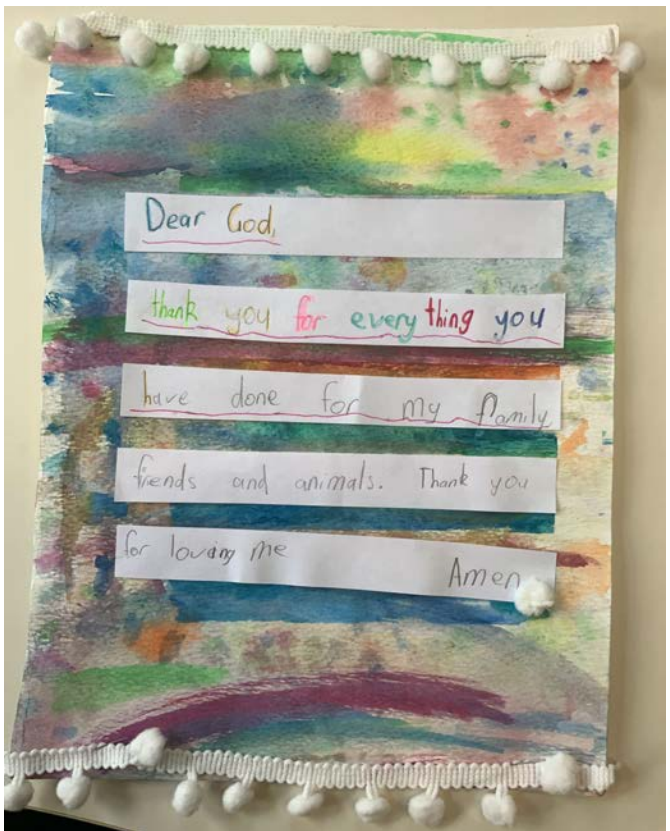 Dear God,
thank you for everything you
have done for my family
friends and animals. Thank you
for loving me
Amen